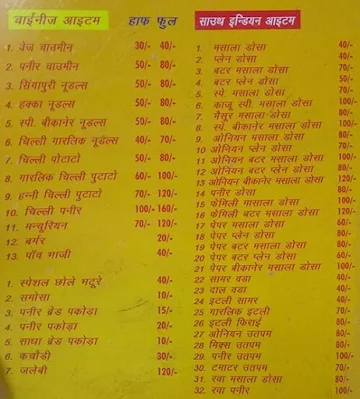 चाईनीज आइटम हाफ फुल
1. वेज चाउमीन 30/- 40/-
2. पनीर चाउमीन 50/- 80/-
3. सिंगापुरी नूडल्स 50/- 80/-
4. हक्का नूडल्स 50/- 80/-
5. स्पी. बीकानेर नूडल्स 50/- 80/-
6. चिल्ली गारलिक नूडल्स 40/- 70/-
7. चिल्ली पोटाटो 50/- 80/-
8. गारलिक चिल्ली पुटाटो 60/- 100/-
9. हन्नी चिल्ली पुटाटो 70/- 120/-
10. चिल्ली पनीर 100/- 160/-
11. मन्चुरियन 70/- 120/-
12. बर्गर 20/-
13. पॉव भाजी 40/-
1. स्पेशल छोले भटूरे 40/-
2. समोसा 10/-
3. पनीर ब्रेड पकोड़ा 15/-
4. पनीर पकोड़ा 20/-
5. साधा ब्रेड पकोड़ा 10/-
6. कचौडी 30/-
7. जलेबी 120/-
साउथ इन्डियन आइटम
1. मसाला डोसा 40/-
2. प्लेन डोसा
3. बटर मसाला डोसा
4. बटर प्लेन डोसा
5. स्पे. मसाला डोसा
6. काजू स्पी. मसाला डोसा 100/-
7. मैसूर मसाला डोसा
8. स्पे. बीकानेर मसाला डोसा
9. ओनियन मसाला डोसा
10. ओनियन प्लेन डोसा
11. ओनियन बटर मसाला डोसा
12. ओनियन बटर प्लेन डोसा
13. ओनियन बीकानेर मसाला डोसा 120/-
14. पनीर डोसा
15. फेमिली मसाला डोसा
16. फेमिली बटर मसाला डोसा
17. पेपर मसाला डोसा
18. पेपर प्लेन डोसा
19. पेपर बटर मसाला डोसा
20. पेपर बटर प्लेन डोसा
21. पेपर बीकानेर मसाला डोसा
22. सामर वडा
23. दाल वडा
24. इटली सामर
25. गारलिक इटली
26. इटली फिराई
27. ओनियन उतपम
28. मिक्स उतपम 80/-
29. पनीर उतपम 100/-
30. टमाटर उतपम
31. रवा मसाला डोसा 80/-
32. रवा पनीर 100/-